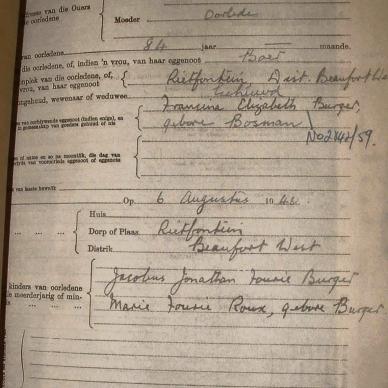 dres van die Ouers
e oorledene
Moeder Oorlede
van oorledene 84 jaar maande.
die oorledene, of, indien 'n vrou, van haar eggenoot Boer
plek van oorledene, of,
vrou, van haar eggenoot Rietfontein Dist. Beaufort We
ngehuud, wewenaar of weduwee
Francina Elizabeth Burger
gebore Bosman
No 2842/59.
of name en so na moontlik, die dag van
Op 6 Augustus 19
Huis
Dorp of Plaas. Rietfontein
Distrik Beaufort West
kinders van oorledene
meerderjarig of min-
Jacobus Jonathan Fourie Burger
Marie Fourie Roux, gebore Burger